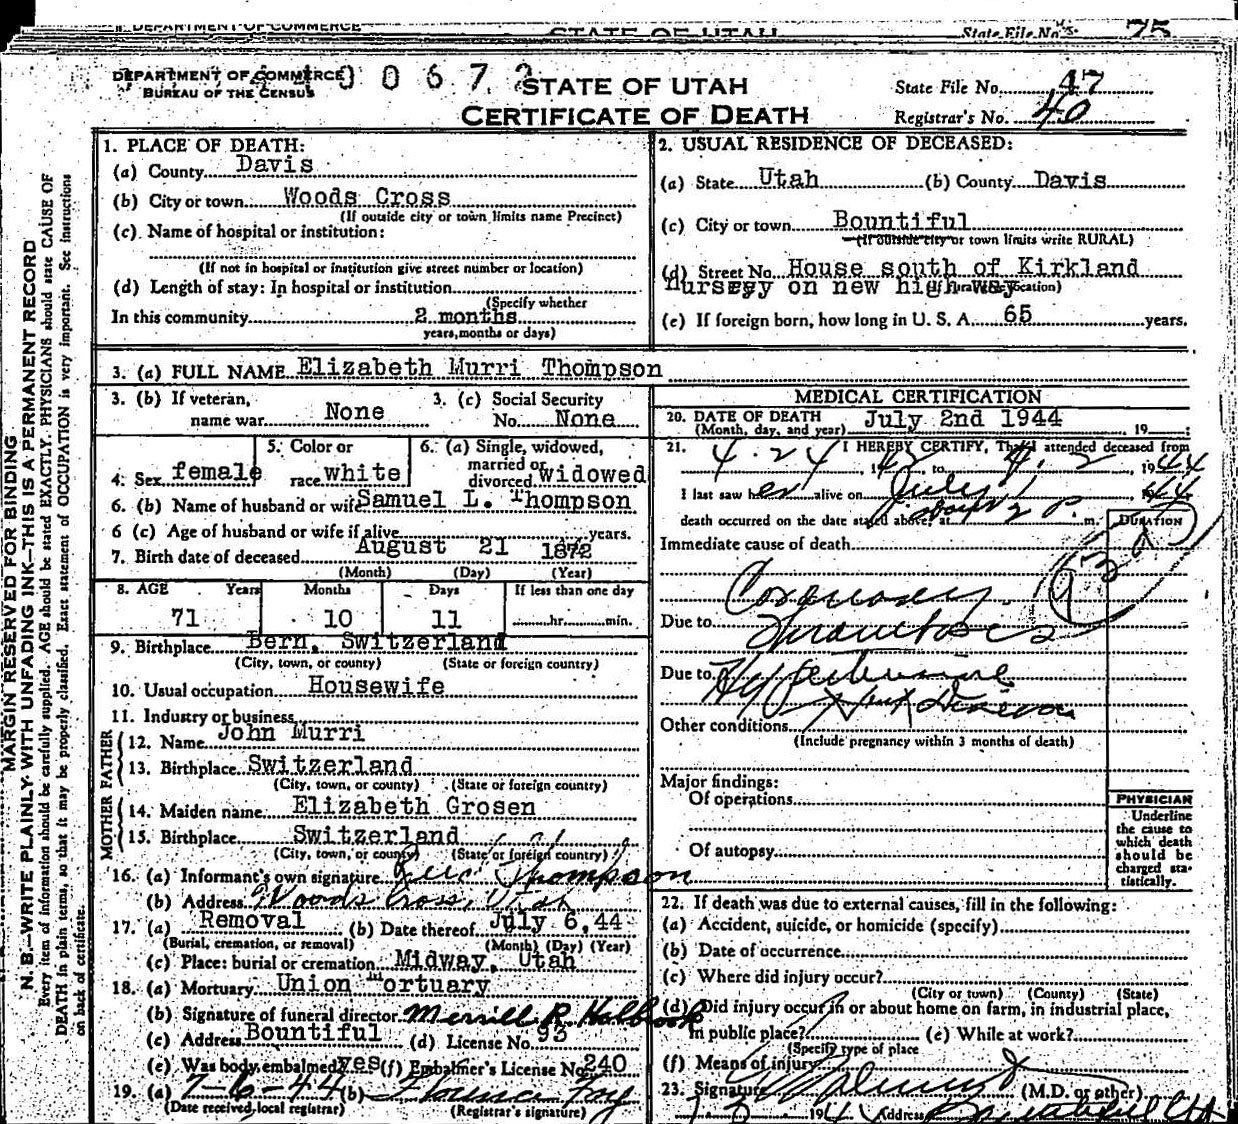 DEPARTMENT OF COMMERCE
STATE OF UTAH
State File No. 75
DEPARTMENT OF COMMERCE
BUREAU OF THE CENSUS
0 0 6 7 2
STATE OF UTAH
CERTIFICATE OF DEATH
State File No. 47
Registrar's No. 40
MARGIN RESERVED FOR BINDING
N. B.—WRITE PLAINLY WITH UNFADING INK—THIS IS A PERMANENT RECORD
Every item of information should be carefully supplied. AGE should be stated EXACTLY. PHYSICIANS should state CAUSE OF
DEATH in plain terms, so that it may be properly classified. Exact statement of OCCUPATION is very important. See instructions
on back of certificate.
1. PLACE OF DEATH:
(a) County Davis
(b) City or town Woods Cross
(If outside city or town limits name Precinct)
(c) Name of hospital or institution:
(If not in hospital or institution give street number or location)
(d) Length of stay: In hospital or institution
(Specify whether
In this community 2 months
years, months or days)
2. USUAL RESIDENCE OF DECEASED:
(a) State Utah (b) County Davis
(c) City or town Bountiful
(If outside city or town limits write RURAL)
(d) Street No. House south of Kirkland
Nursery on new highway
(e) If foreign born, how long in U. S. A. 65 years.
3. (a) FULL NAME Elizabeth Murri Thompson
3. (b) If veteran, name war None
3. (c) Social Security No. None
4. Sex female
5. Color or race white
6. (a) Single, widowed, married or divorced widowed
6. (b) Name of husband or wife Samuel L. Thompson
6 (c) Age of husband or wife if alive years.
7. Birth date of deceased August 21 1872
(Month) (Day) (Year)
8. AGE Years Months Days If less than one day
71 10 11 hr. min.
9. Birthplace Bern, Switzerland
(City, town, or county) (State or foreign country)
10. Usual occupation Housewife
11. Industry or business
FATHER
12. Name John Murri
13. Birthplace Switzerland
(City, town, or county) (State or foreign country)
MOTHER
14. Maiden name Elizabeth Grosen
15. Birthplace Switzerland
(City, town, or county) (State or foreign country)
16. (a) Informant's own signature Thompson
(b) Address Woods Cross, Utah
17. (a) Removal (b) Date thereof July 6, 44
(Burial, cremation, or removal) (Month) (Day) (Year)
(c) Place: burial or cremation Midway, Utah
18. (a) Mortuary Union Mortuary
(b) Signature of funeral director Merrill R. Holbrook
(c) Address Bountiful (d) License No. 93
(e) Was body embalmed yes (f) Embalmer's License No. 240
19. (a) 7-6-44 (b) Florence Foy
(Date received local registrar) (Registrar's signature)
MEDICAL CERTIFICATION
20. DATE OF DEATH July 2nd 1944
(Month, day, and year) 19
21. I HEREBY CERTIFY, That I attended deceased from
4.24 1942 to 1944
I last saw her alive on July 1 1944
death occurred on the date stated above, at about 2 P. m.
DURATION
Immediate cause of death
Coronary
Due to Thrombosis
Due to Hypertensive
Heart Disease
Other conditions
(Include pregnancy within 3 months of death)
Major findings:
Of operations
Of autopsy
PHYSICIAN
Underline
the cause to
which death
should be
charged sta-
tistically.
22. If death was due to external causes, fill in the following:
(a) Accident, suicide, or homicide (specify)
(b) Date of occurrence
(c) Where did injury occur?
(City or town) (County) (State)
(d) Did injury occur in or about home on farm, in industrial place,
in public place? (e) While at work?
(Specify type of place
(f) Means of injury
23. Signature (M.D. or other)
194 Address Bountiful Ut